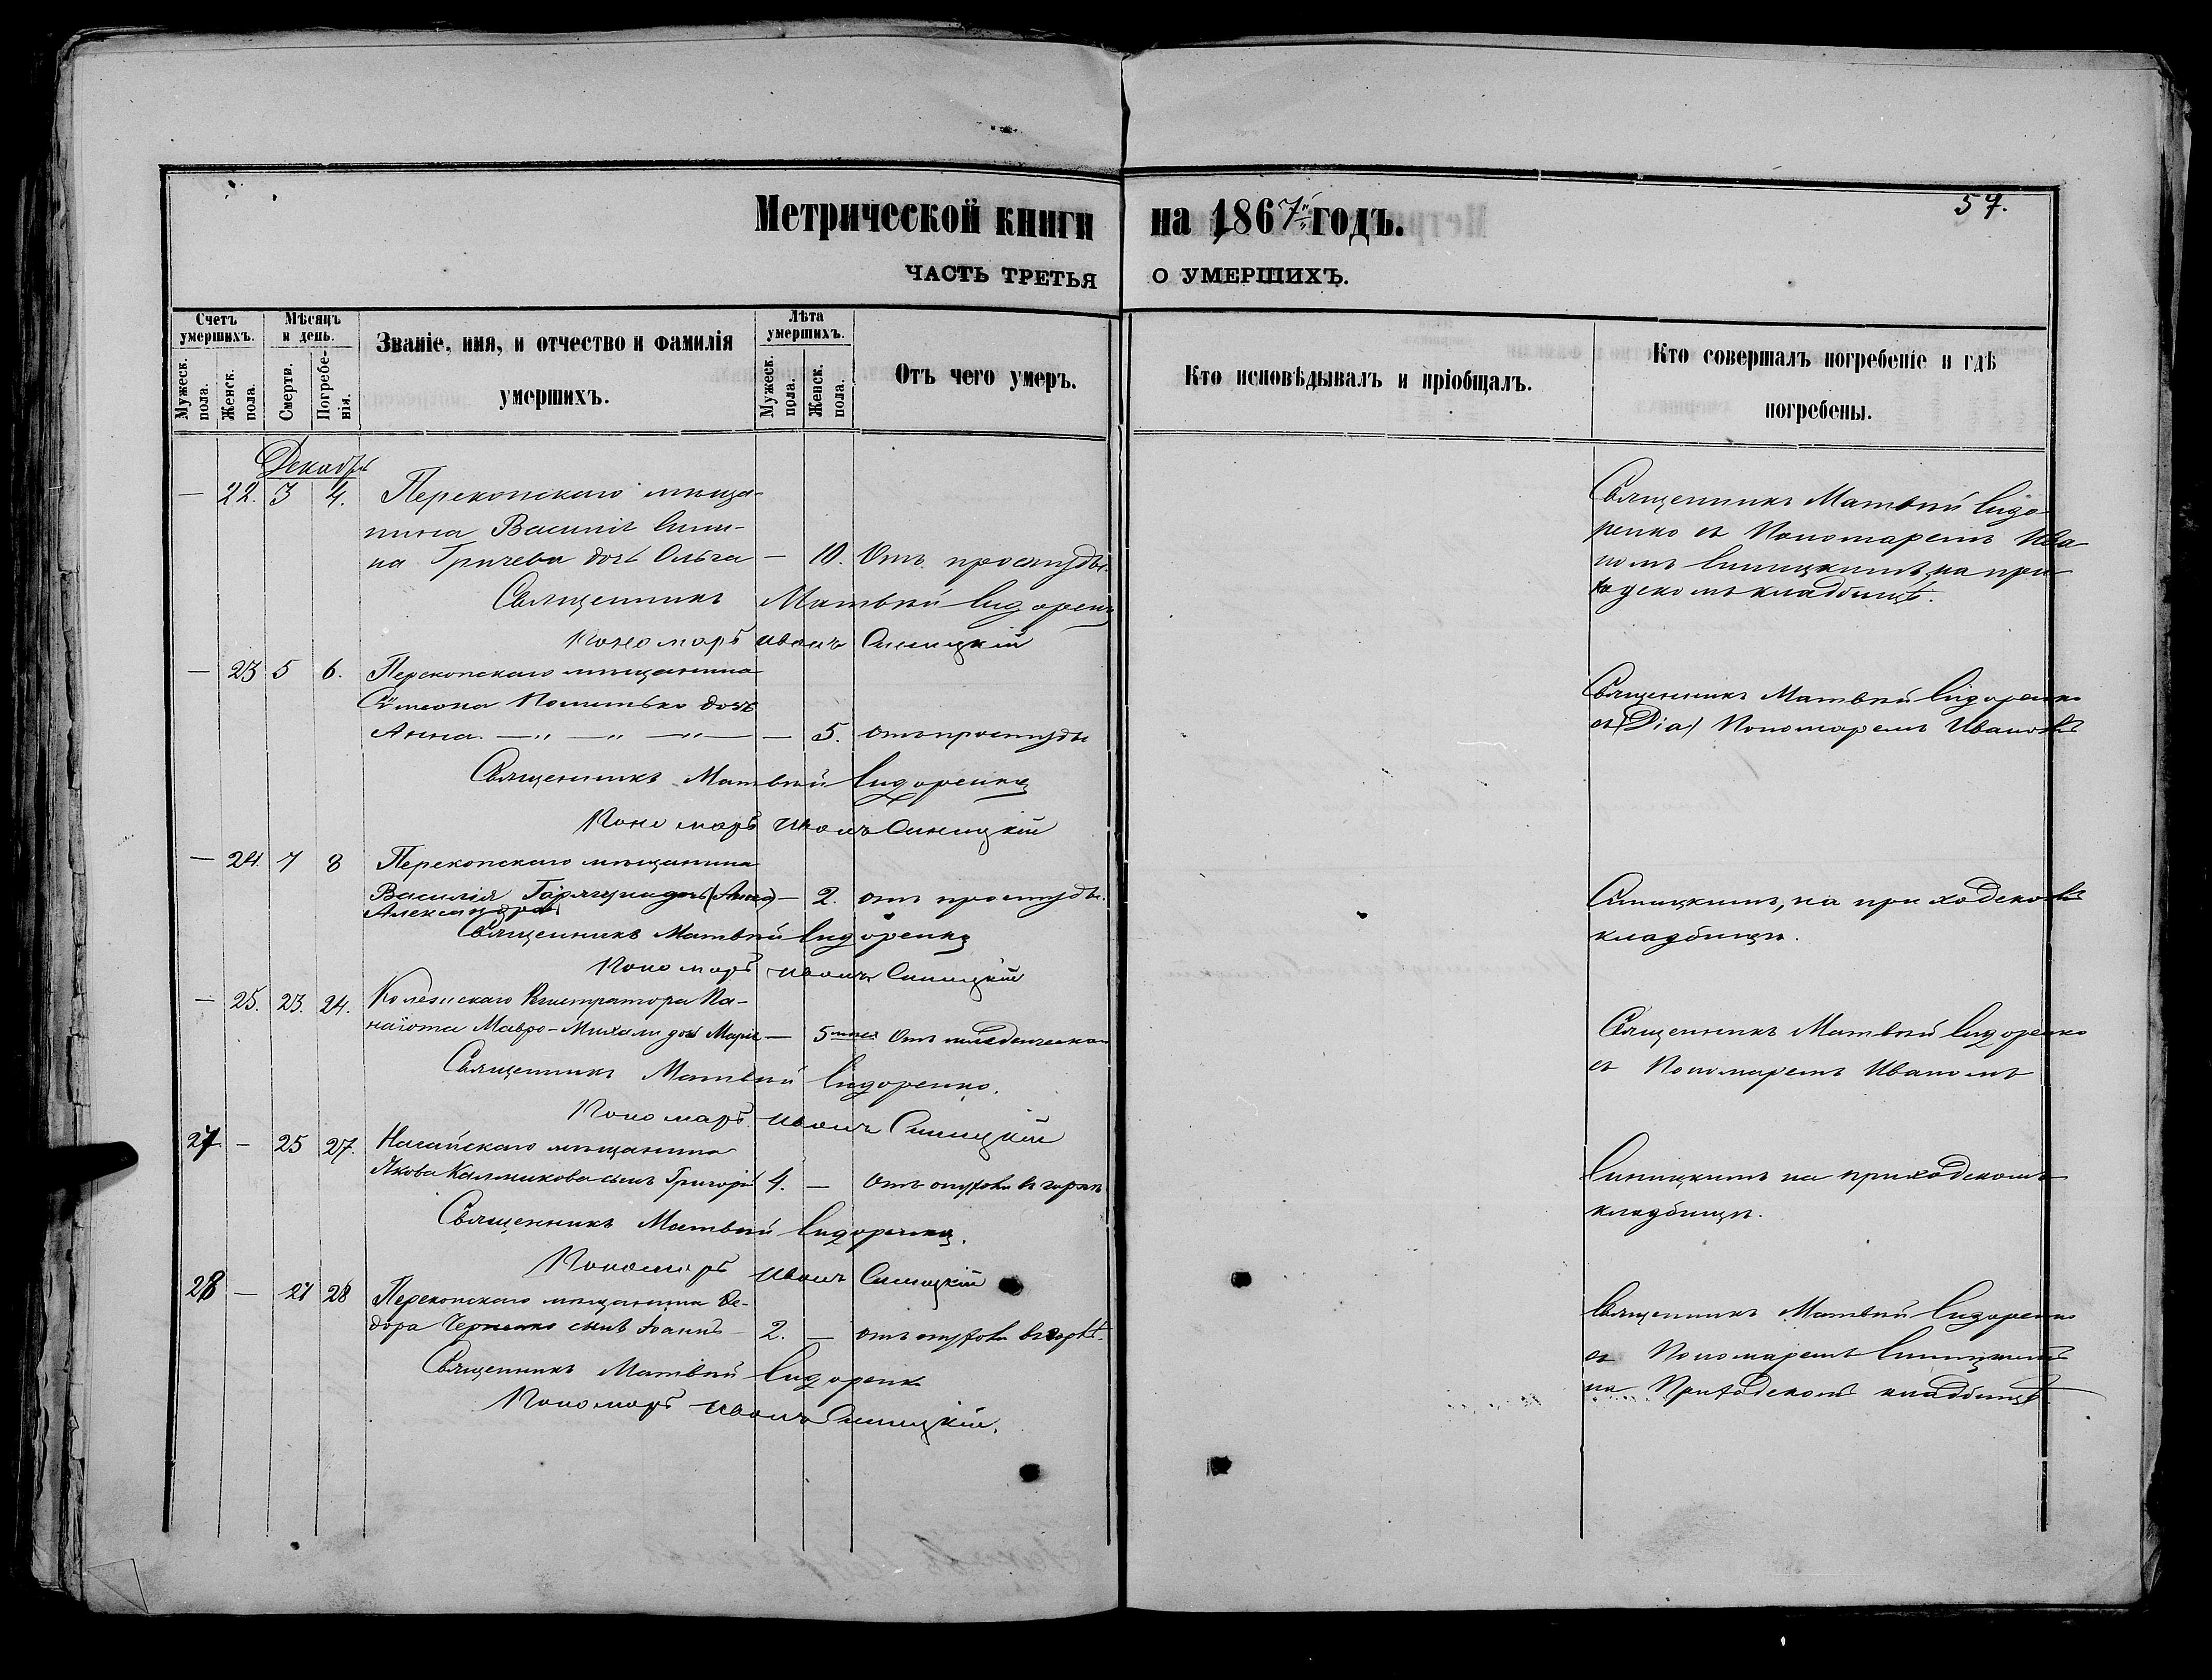 57.
Метрической книги на 1867й годъ.
ЧАСТЬ ТРЕТЬЯ О УМЕРШИХЪ.
Счетъ умершихъ.
Мужеск. пола.
Женск. пола.
Мѣсяцъ и день.
Смерти.
Погребе-
нія.
Званіе, имя, и отчество и фамилія
умершихъ.
Лѣта умершихъ.
Мужеск. пола.
Женск. пола.
Отъ чего умеръ.
Кто исповѣдывалъ и пріобщалъ.
Кто совершалъ погребеніе и гдѣ
погребены.
Декабрь
— 22. 3 4. Перекопскаго мѣща-
нина Василія
дочь Ольга — 10. Отъ простуды.
Священникъ Матвѣй Сидоренко
Пономарь Иванъ Синицкій
Священникъ Матвѣй Сидо-
ренко съ Пономаремъ Ива
номъ Синицкимъ, на при
ходскомъ кладбищѣ.
— 23 5 6. Перекопскаго мѣщанина
Сѵмеона дочь
Анна. —"— —"— —"— — 5. отъ простуды
Священникъ Матвѣй Сидоренко
Пономарь Иванъ Синицкій
Священникъ Матвѣй Сидоренко
съ (Діа) Пономаремъ Иваномъ
— 24. 7 8 Перекопскаго мѣщанина
Василія дочь (Анна) — 2. отъ простуды.
Александра
Священникъ Матвѣй Сидоренко
Пономарь Иванъ Синицкій
Синицкимъ, на приходскомъ
кладбищѣ.
— 25. 23. 24. Колежскаго Регистратора Па-
наіота Мавро-Михали дочь Марія — 5 мѣс. Отъ младенческой
Священникъ Матвѣй Сидоренко.
Пономарь Иванъ Синицкій
Священникъ Матвѣй Сидоренко
съ Пономаремъ Иваномъ
27. — 25 27. Нагайскаго мѣщанина
Якова Калмикова сынъ Григорій 4. — Отъ опухоли въ горлѣ
Священникъ Матвѣй Сидоренко.
Пономарь Иванъ Синицкій
Синицкимъ на приходскомъ
кладбищѣ.
28 — 27 28 Перекопскаго мѣщанина Ѳе-
дора сынъ Іоаннъ 2. — отъ опухоли въ горлѣ.
Священникъ Матвѣй Сидоренко
Пономарь Иванъ Синицкій.
Священникъ Матвѣй Сидоренко
съ Пономаремъ Синицкимъ
на Приходскомъ кладбищѣ